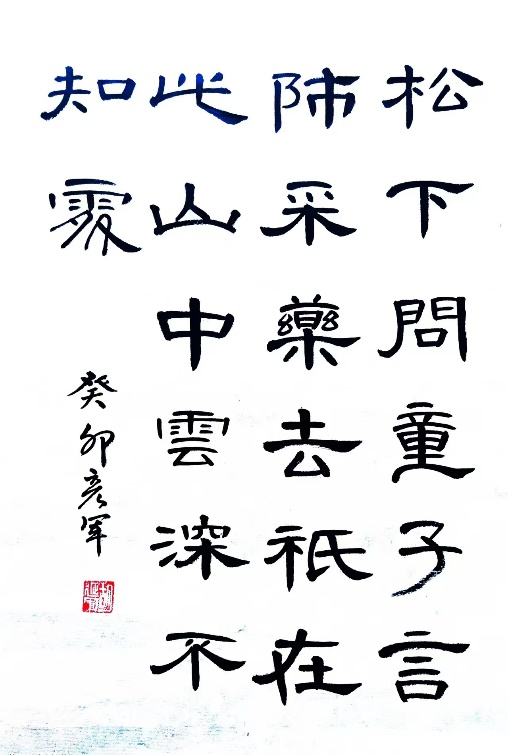 松下問童子言
師采藥去祇在
此山中雲深不
知處
癸卯彦軍